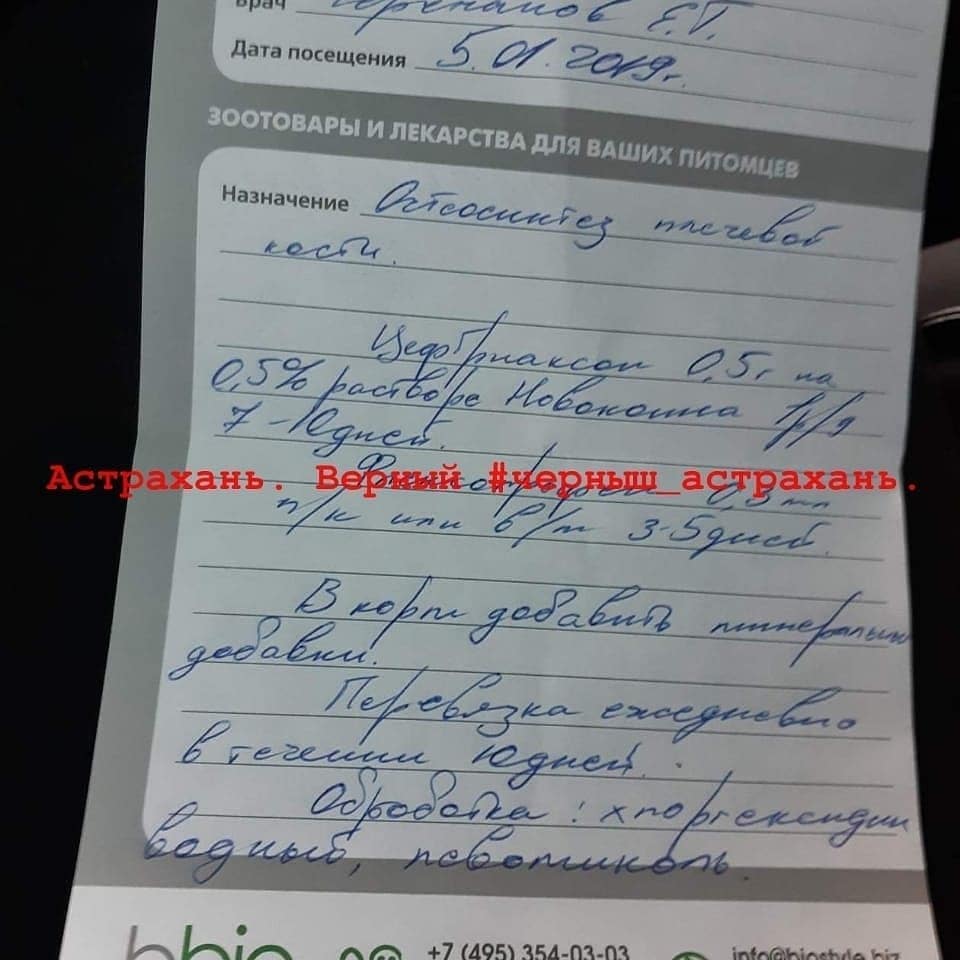 врач Черепанов Е.Г.
Дата посещения 5.01.2019г.
ЗООТОВАРЫ И ЛЕКАРСТВА ДЛЯ ВАШИХ ПИТОМЦЕВ
Назначение Остеосинтез плечевой
кости.
Цефтриаксон 0,5г на
0,5% растворе Новокаина 1р/д
7-10дней.
Астрахань. Верный #черныш_астрахань.
0,3мл
п/к или в/м 3-5дней.
В корм добавить минеральные
добавки.
Перевязка ежедневно
в течении 10дней.
Обработка: хлоргексидин
водный, левомиколь.
bio
+7 (495) 354-03-03
info@biostyle.biz